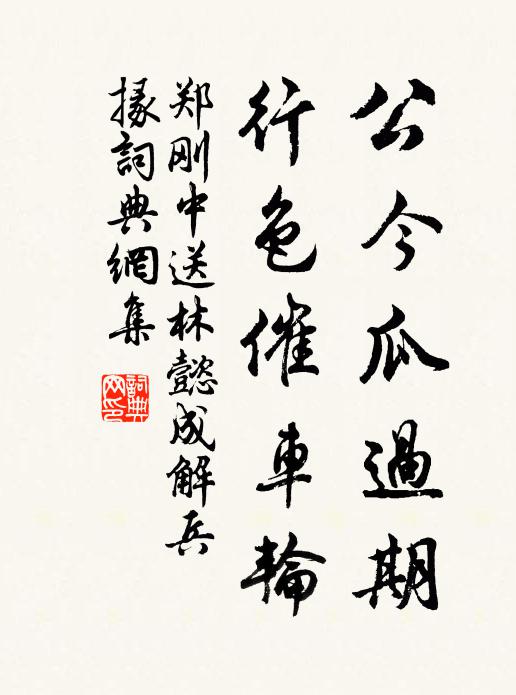 公今瓜過期
行色催車輪
郑刚中送林懿成解兵
掾詞典網集
詞典网印